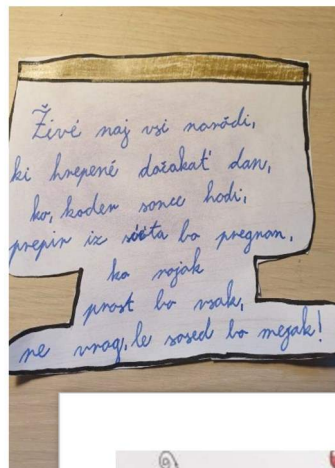 Živé naj vsi naródi,
ki hrepené dočakat' dan,
ko, koder sonce hodi,
prepir iz svéta bo pregnan,
ko rojak
prost bo vsak,
ne vrag, le sosed bo mejak!